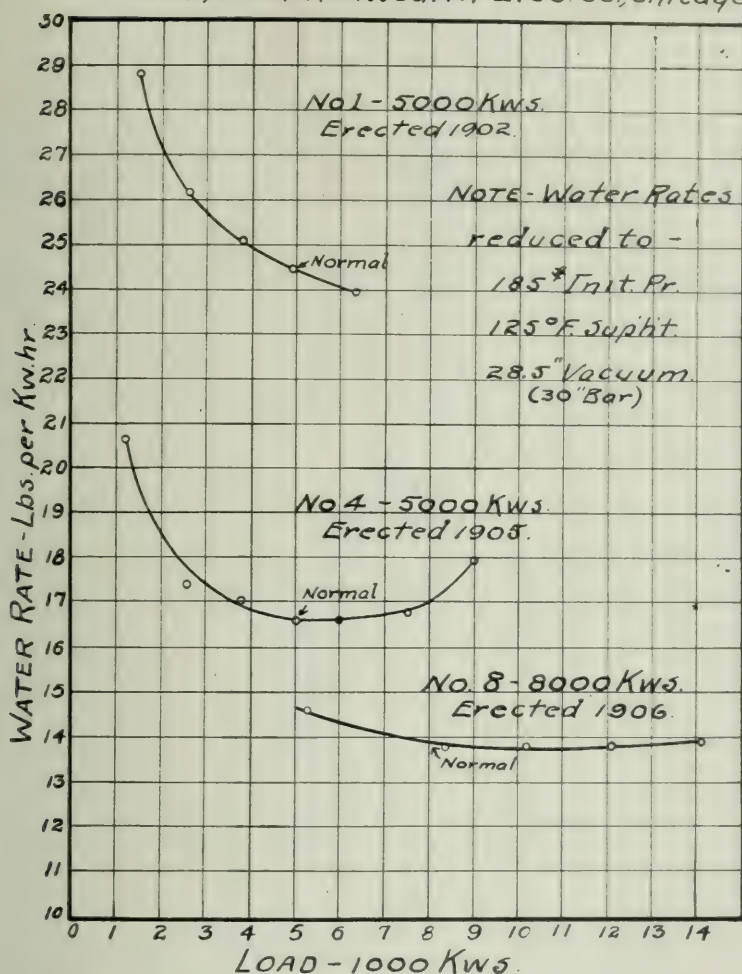 30
29
28
27
26
25
24
23
22
21
20
19
18
17
16
15
14
13
12
11
10
WATER RATE - Lbs. per Kw. hr.
No 1 - 5000 Kws.
Erected 1902.
NOTE - Water Rates
reduced to -
185# Init. Pr.
125°F. Supht.
28.5" Vacuum.
(30" Bar)
Normal
No 4 - 5000 Kws.
Erected 1905.
Normal
No. 8 - 8000 Kws.
Erected 1906.
Normal
0 1 2 3 4 5 6 7 8 9 10 11 12 13 14
LOAD - 1000 Kws.